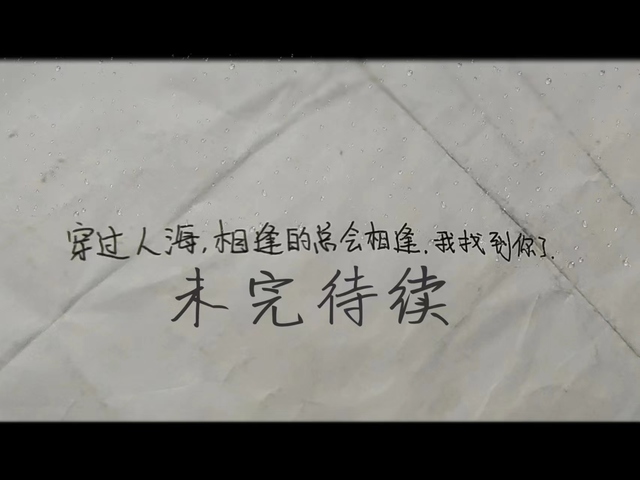 穿过人海,相逢的总会相逢.我找到你了.
未完待续